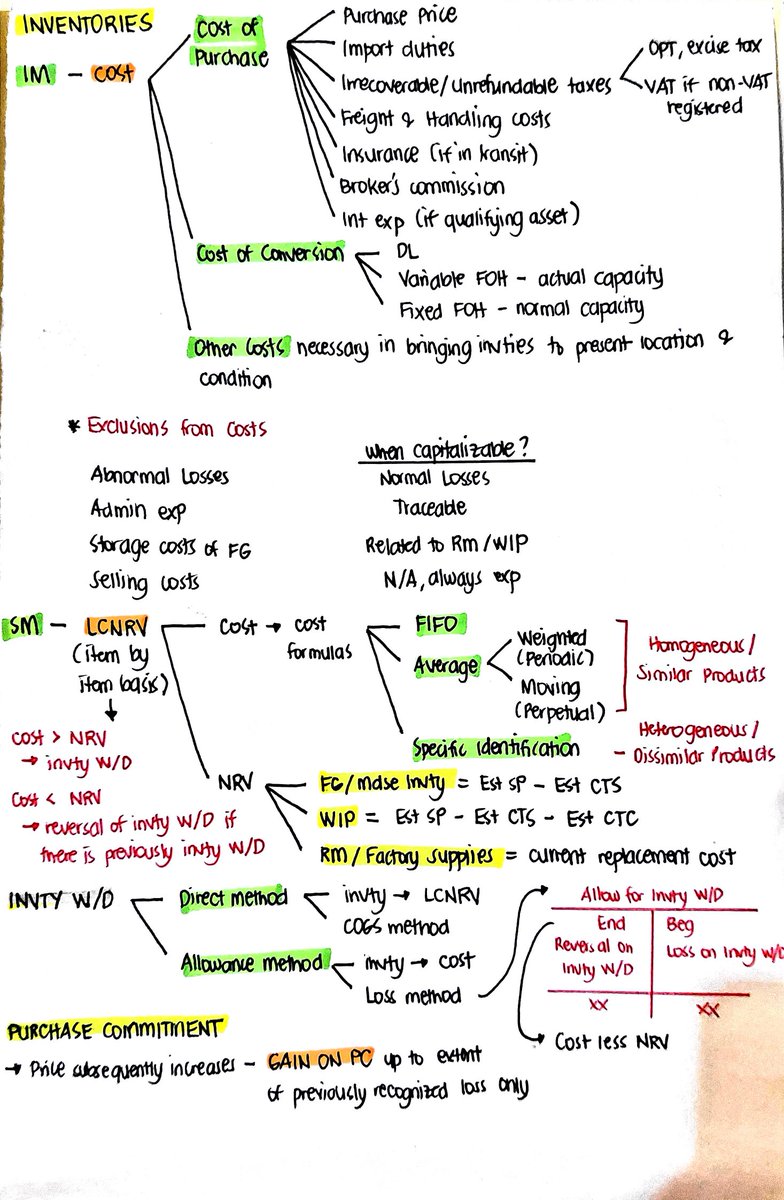 INVENTORIES
IM - COST
Cost of
Purchase
Purchase Price
Import duties
Irrecoverable/unrefundable taxes
OPT, excise tax
VAT if non-VAT
registered
Freight & Handling costs
Insurance (if in transit)
Broker's commission
Int exp (if qualifying asset)
Cost of Conversion
DL
Variable FOH - actual capacity
Fixed FOH - normal capacity
Other Costs necessary in bringing invties to present location &
condition
* Exclusions from costs
When capitalizable?
Abnormal Losses
Normal Losses
Admin exp
Traceable
Storage costs of FG
Related to RM/WIP
Selling costs
N/A, always exp
SM - LCNRV
(item by
item basis)
Cost → cost
formulas
FIFO
Average
Weighted
(Periodic)
Moving
(Perpetual)
Homogeneous/
Similar Products
Specific Identification
Heterogeneous/
- Dissimilar Products
Cost > NRV
→ invty W/D
Cost < NRV
→ reversal of invty W/D if
there is previously invty W/D
NRV
FG/mdse Invty = Est SP - Est CTS
WIP = Est SP - Est CTS - Est CTC
RM/Factory supplies = current replacement cost
INVTY W/D
Direct method
invty → LCNRV
COGS method
Allowance method
invty → cost
Loss method
Allow for Invty W/D
End
Reversal on
Invty W/D
xx
Beg
Loss on Invty W/D
xx
Cost less NRV
PURCHASE COMMITMENT
→ Price subsequently increases - GAIN ON PC up to extent
of previously recognized loss only